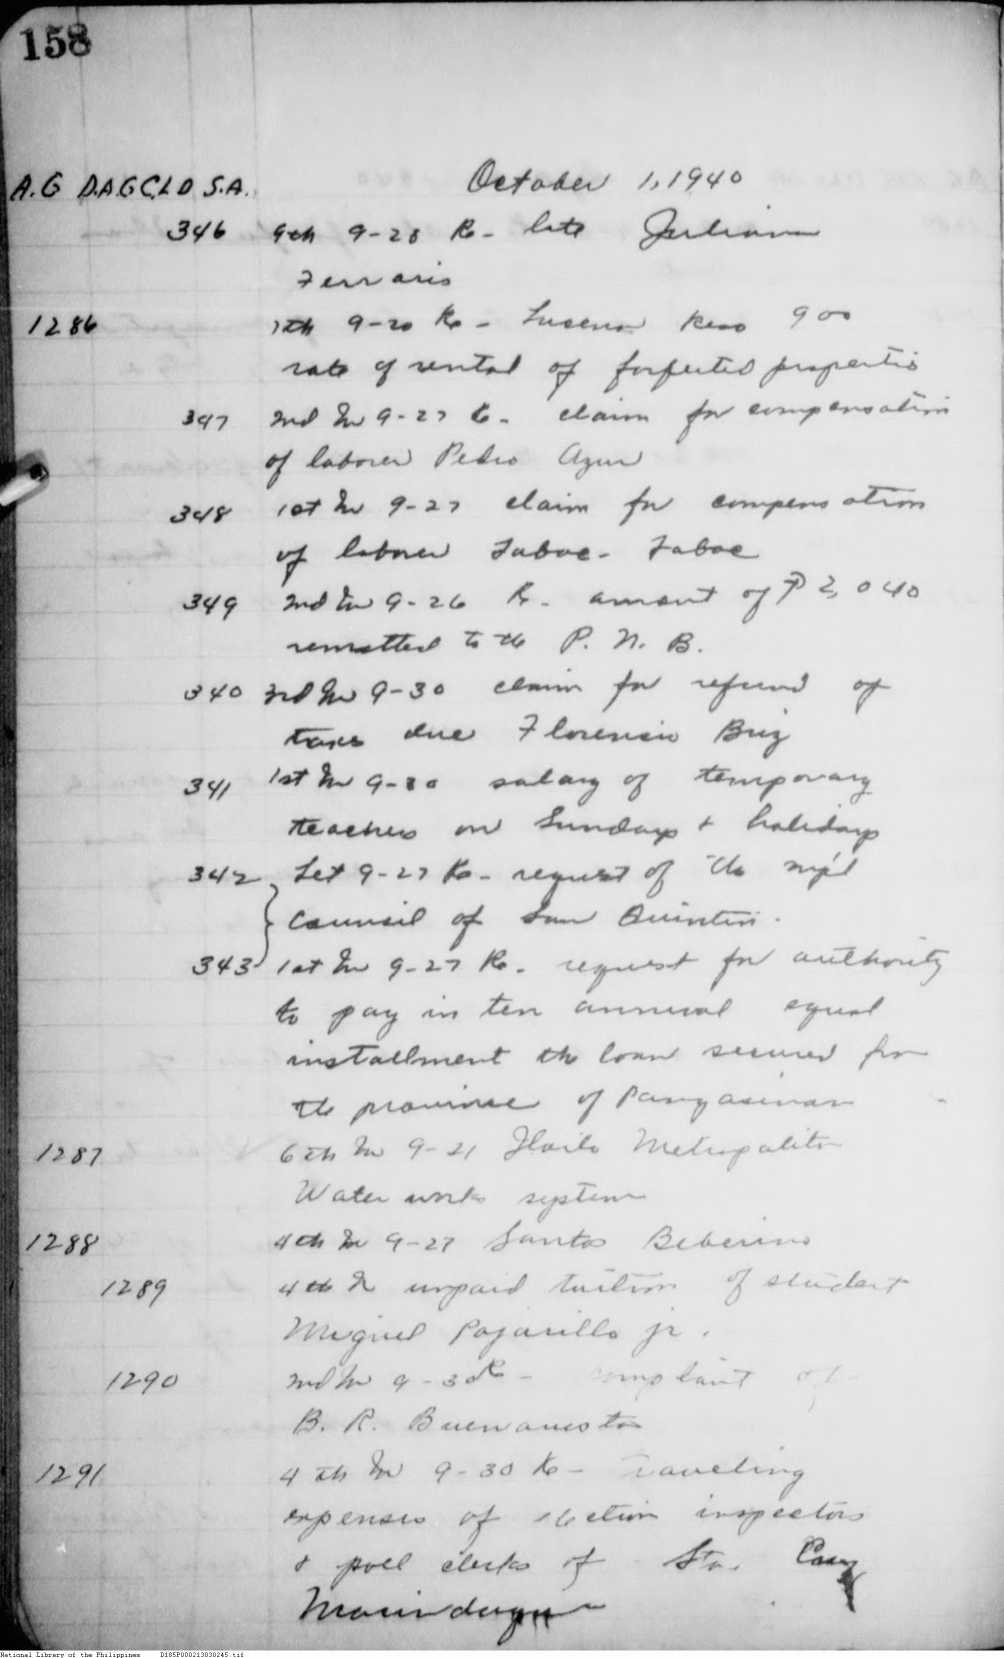 158
A.G D.A.G.C.L.D S.A. October 1, 1940
346 9th 9-28 Re- late Juliana
Ferraris
1286 7th 9-20 Re - Lucena Reso 900
rate of rental of forfeited properties
347 2nd In 9-27 Re- claim for compensation
of laborer Pedro
348 1st In 9-27 claim for compensation
of laborer
349 2nd In 9-26 Re- amount of ₱2,040
remitted to the P. N. B.
340 3rd In 9-30 claim for refund of
taxes due Florencio Briz
341 1st In 9-30 salary of temporary
teachers on Sundays & holidays
342 Let 9-27 Re- request of the mp'l
Council of San Quintin.
343 1st In 9-27 Re- request for authority
to pay in ten annual equal
installment the loan secured from
the province of Pangasinan
1287 6th In 9-21 Iloilo Metropolitan
Water works system
1288 4th In 9-27 Santos
1289 4th In unpaid tuition of student
Miguel Pajarillo jr.
1290 2nd In 9-30 Re- complaint of
B. R. Buenavista
1291 4th In 9-30 Re- Traveling
expenses of election inspectors
& poll clerks of Sta. Cruz
Marinduque
National Library of the Philippines D185P000213030245.tif